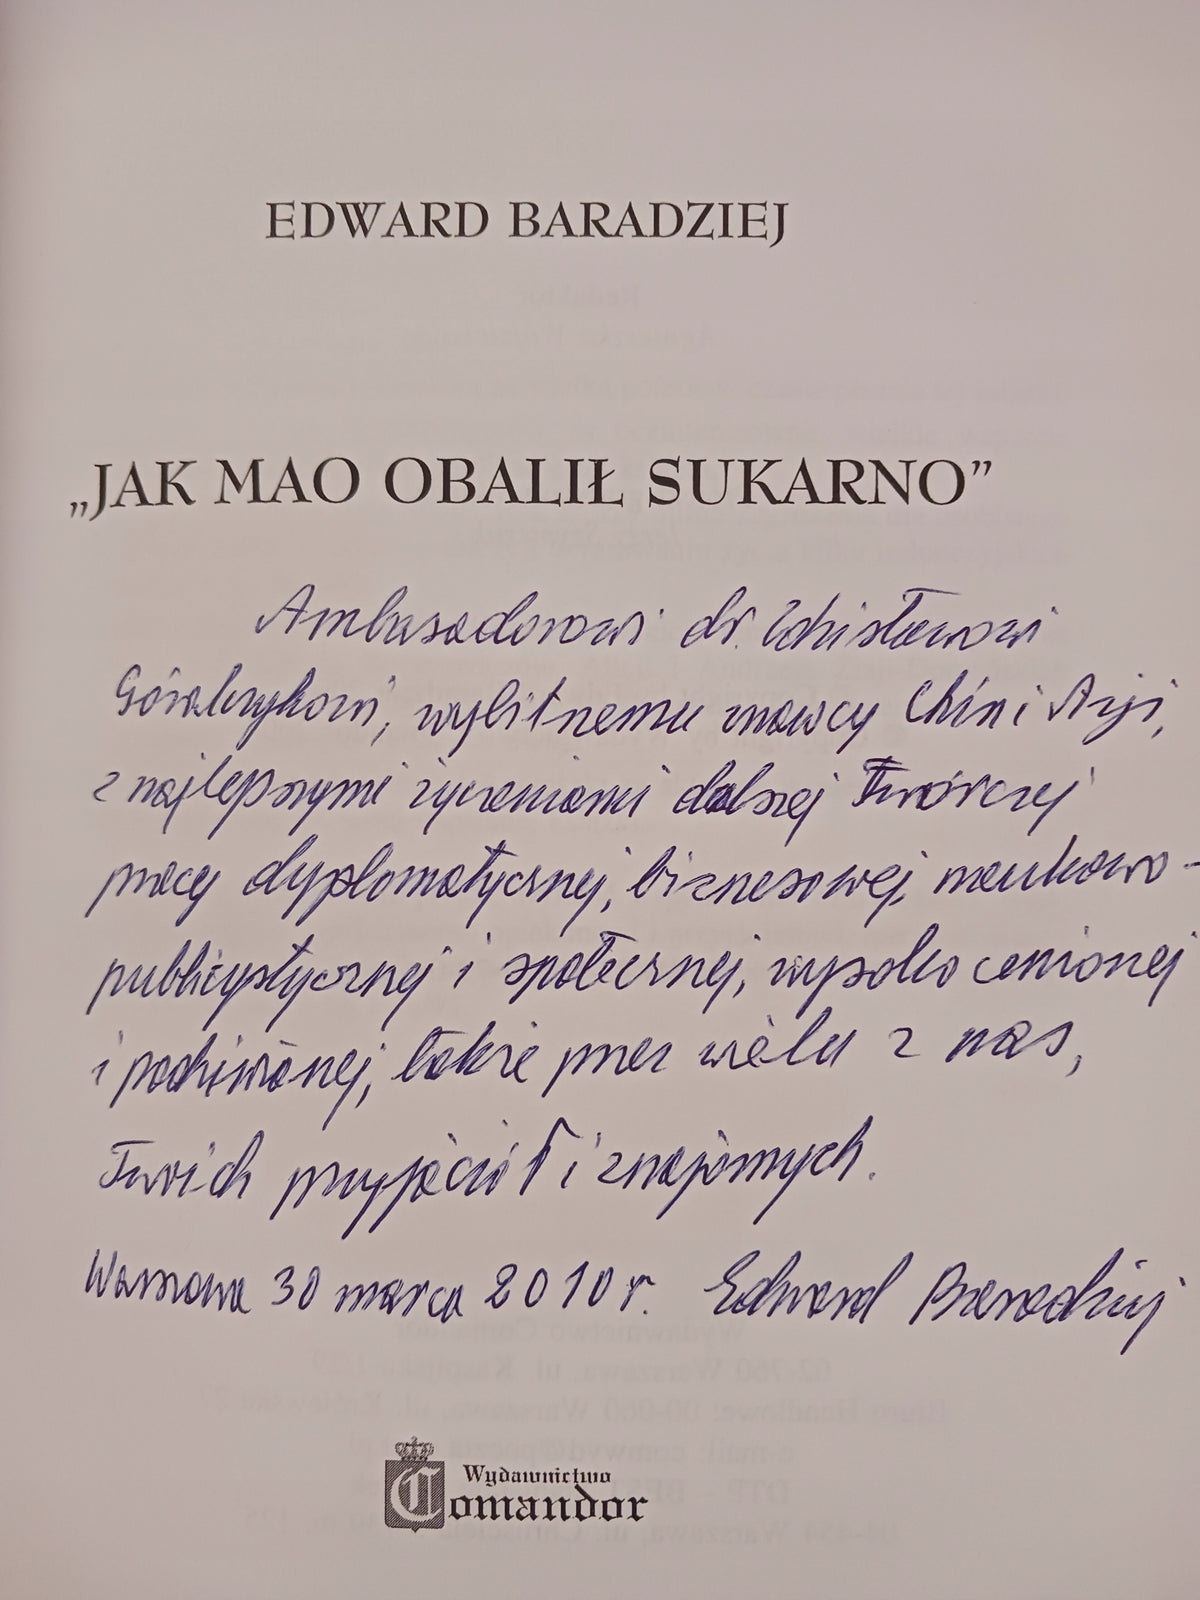 EDWARD BARADZIEJ
„JAK MAO OBALIŁ SUKARNO”
Ambasadorowi dr. Zdzisławowi
Góralczykowi, wybitnemu znawcy Chin i Azji,
z najlepszymi życzeniami dalszej twórczej
pracy dyplomatycznej, biznesowej, naukowo-
publicystycznej i społecznej, wysoko cenionej
i podziwianej, także przez wielu z nas,
Twoich przyjaciół i znajomych.
Warszawa 30 marca 2010 r. Edward Baradziej
Wydawnictwo
Comandor